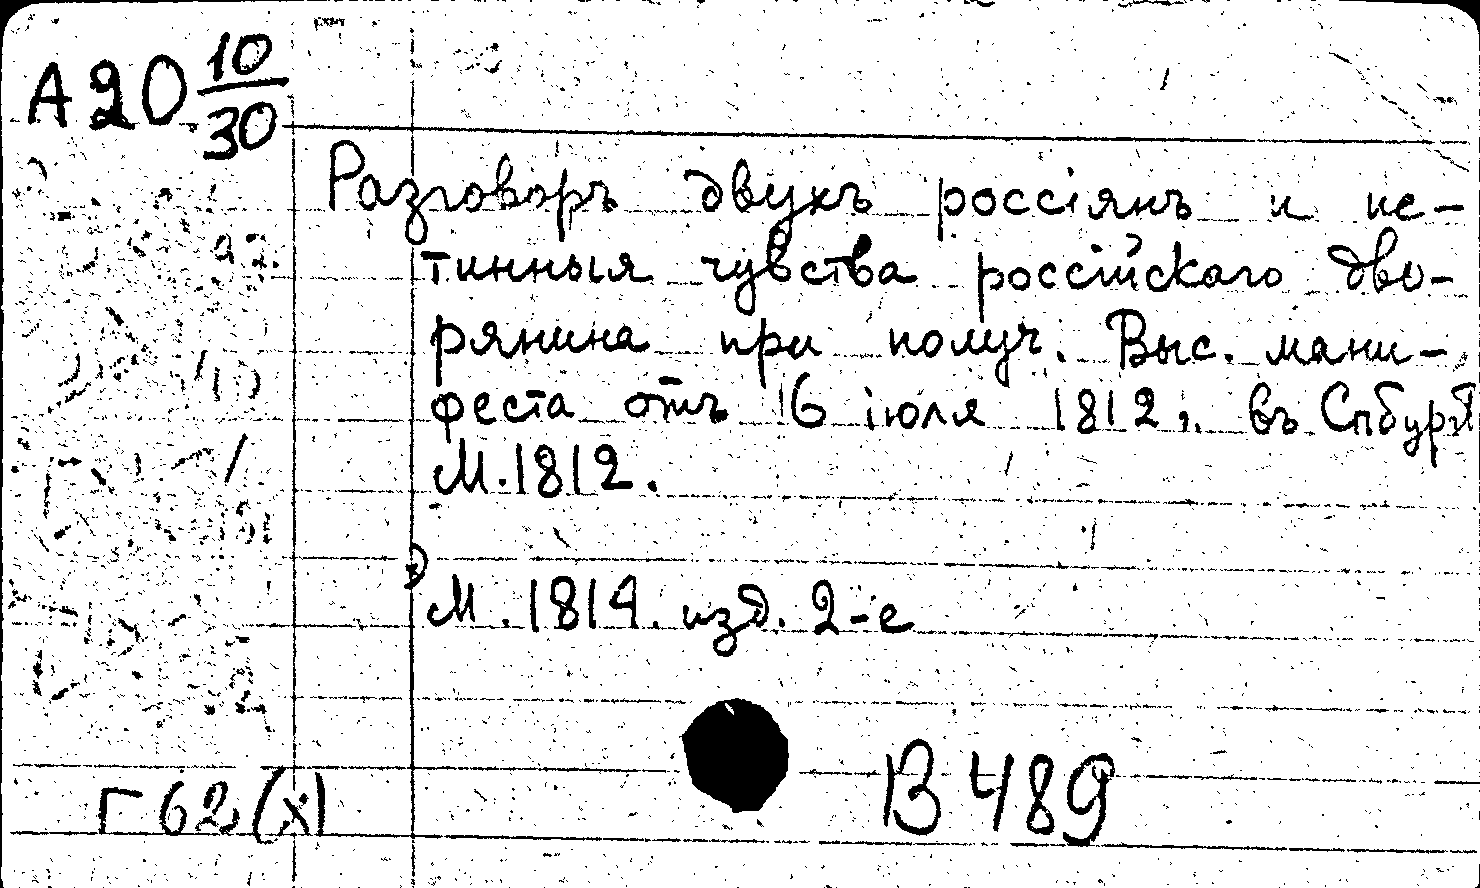 А 20 10/30
Разговоръ двухъ россіянъ и ис-
тинныя чувства россійскаго дво-
рянина при получ. Выс. мани-
феста отъ 16 іюля 1812 г. въ Спбургѣ
М. 1812.
М. 1814. изд. 2-е
В 489
Г 62 (х)